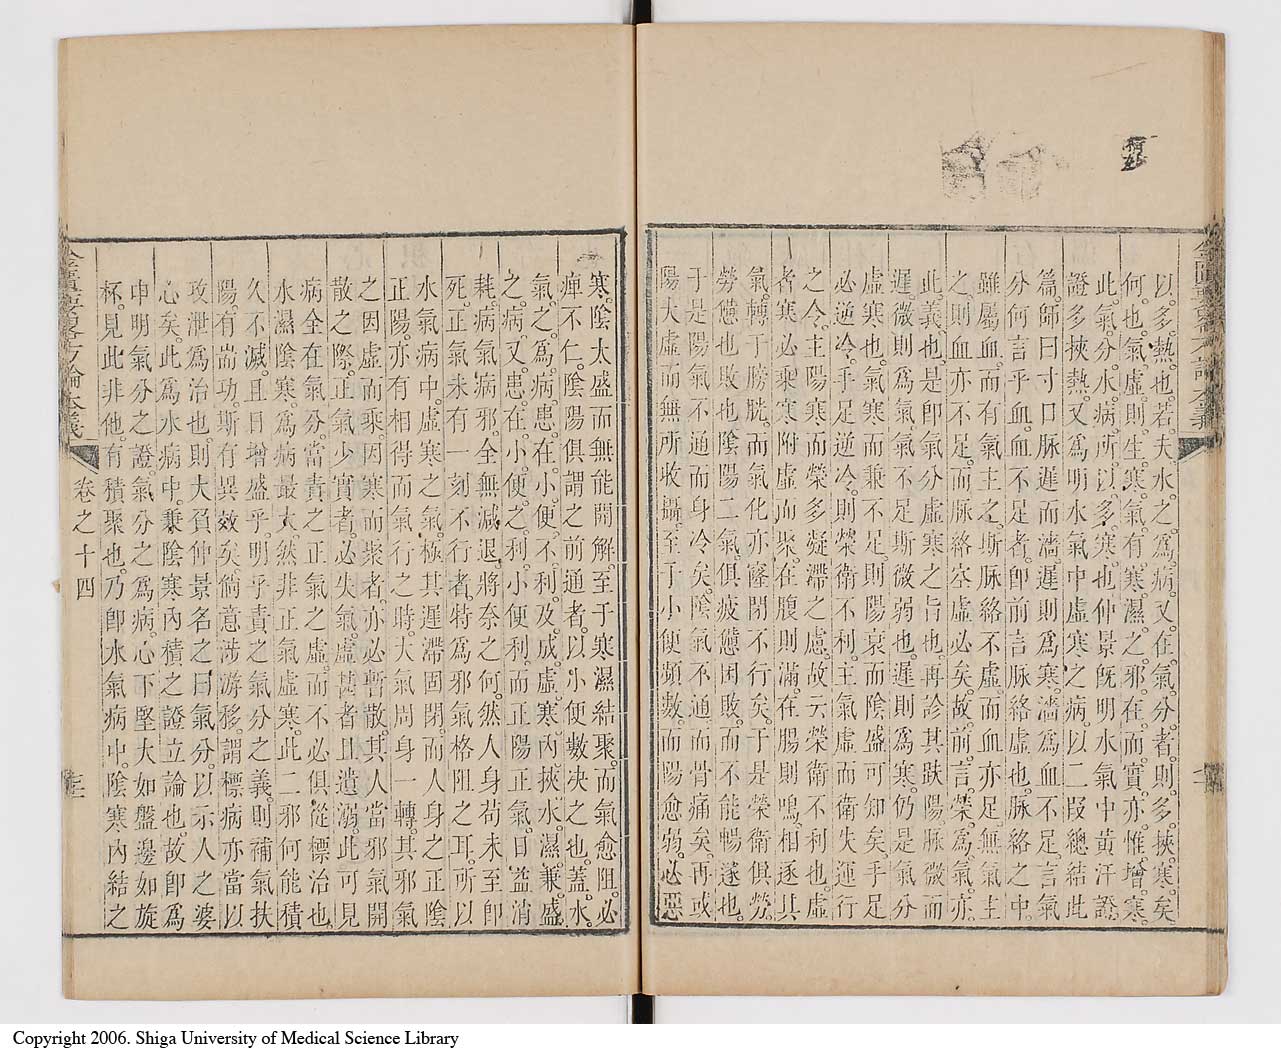 以多熱也若夫水之爲病又在氣分者則多挾寒矣
何也氣虛則生寒氣有寒濕之邪在而實亦惟增寒
此氣分水病所以多寒也仲景既明水氣中黃汗證
證多挾熱又爲明水氣中虛寒之病以二段總結此
篇師曰寸口脉遲而濇遲則爲寒濇爲血不足言氣
分何言乎血血不足者卽前言脉絡虛也脉絡之中
雖屬血而有氣主之斯脉絡不虛而血亦足無氣主
之則血亦不足而脉絡空虛必矣故前言榮爲氣亦
此義也是卽氣分虛寒之旨也再診其趺陽脉微而
遲微則爲氣氣不足斯微弱也遲則爲寒仍是氣分
虛寒也氣寒而兼不足則陽衰而陰盛可知矣手足
必逆冷手足逆冷則榮衛不利主氣虛而衛失運行
之令主陽寒而榮多凝滯之慮故云榮衛不利也虛
者寒必乘寒附虛而聚在腹則滿在腸則鳴相逐其
氣轉于膀胱而氣化亦窿閉不行矣于是榮衛俱勞
勞憊也敗也陰陽二氣俱疲憊困敗而不能暢遂也
于是陽氣不通而身冷矣陰氣不通而骨痛矣再或
陽大虛而無所收攝至于小便頻數而陽愈弱必惡
寒陰太盛而無能開解至于寒濕結聚而氣愈阻必
痺不仁陰陽俱謂之前通者以小便數決之也蓋水
氣之爲病患在小便不利及成虛寒內挾水濕兼盛
之病又患在小便之利小便利而正陽正氣日益消
耗病氣病邪全無減退將奈之何然人身苟未至卽
死正氣未有一刻不行者特爲邪氣格阻之耳所以
水氣病中虛寒之氣極其遲滯固閉而人身之正陰
正陽亦有相得而氣行之時大氣周身一轉其邪氣
之因虛而乘因寒而聚者亦必暫散其人當邪氣開
散之際正氣少實者必失氣虛甚者且遺溺此可見
病全在氣分當責之正氣之虛而不必俱從標治也
水濕陰寒爲病最大然非正氣虛寒此二邪何能積
久不減且日增盛乎明乎責之氣分之義則補氣扶
陽有耑功斯有異效矣倘意涉游移謂標病亦當以
攻泄爲治也則大負仲景名之曰氣分以示人之婆
心矣此爲水病中乗陰寒內積之證立論也故卽爲
申明氣分之證氣分之爲病心下堅大如盤邊如旋
杯見此非他有積聚也乃卽水氣病中陰寒內結之
金匱要略方論本義
卷之十四